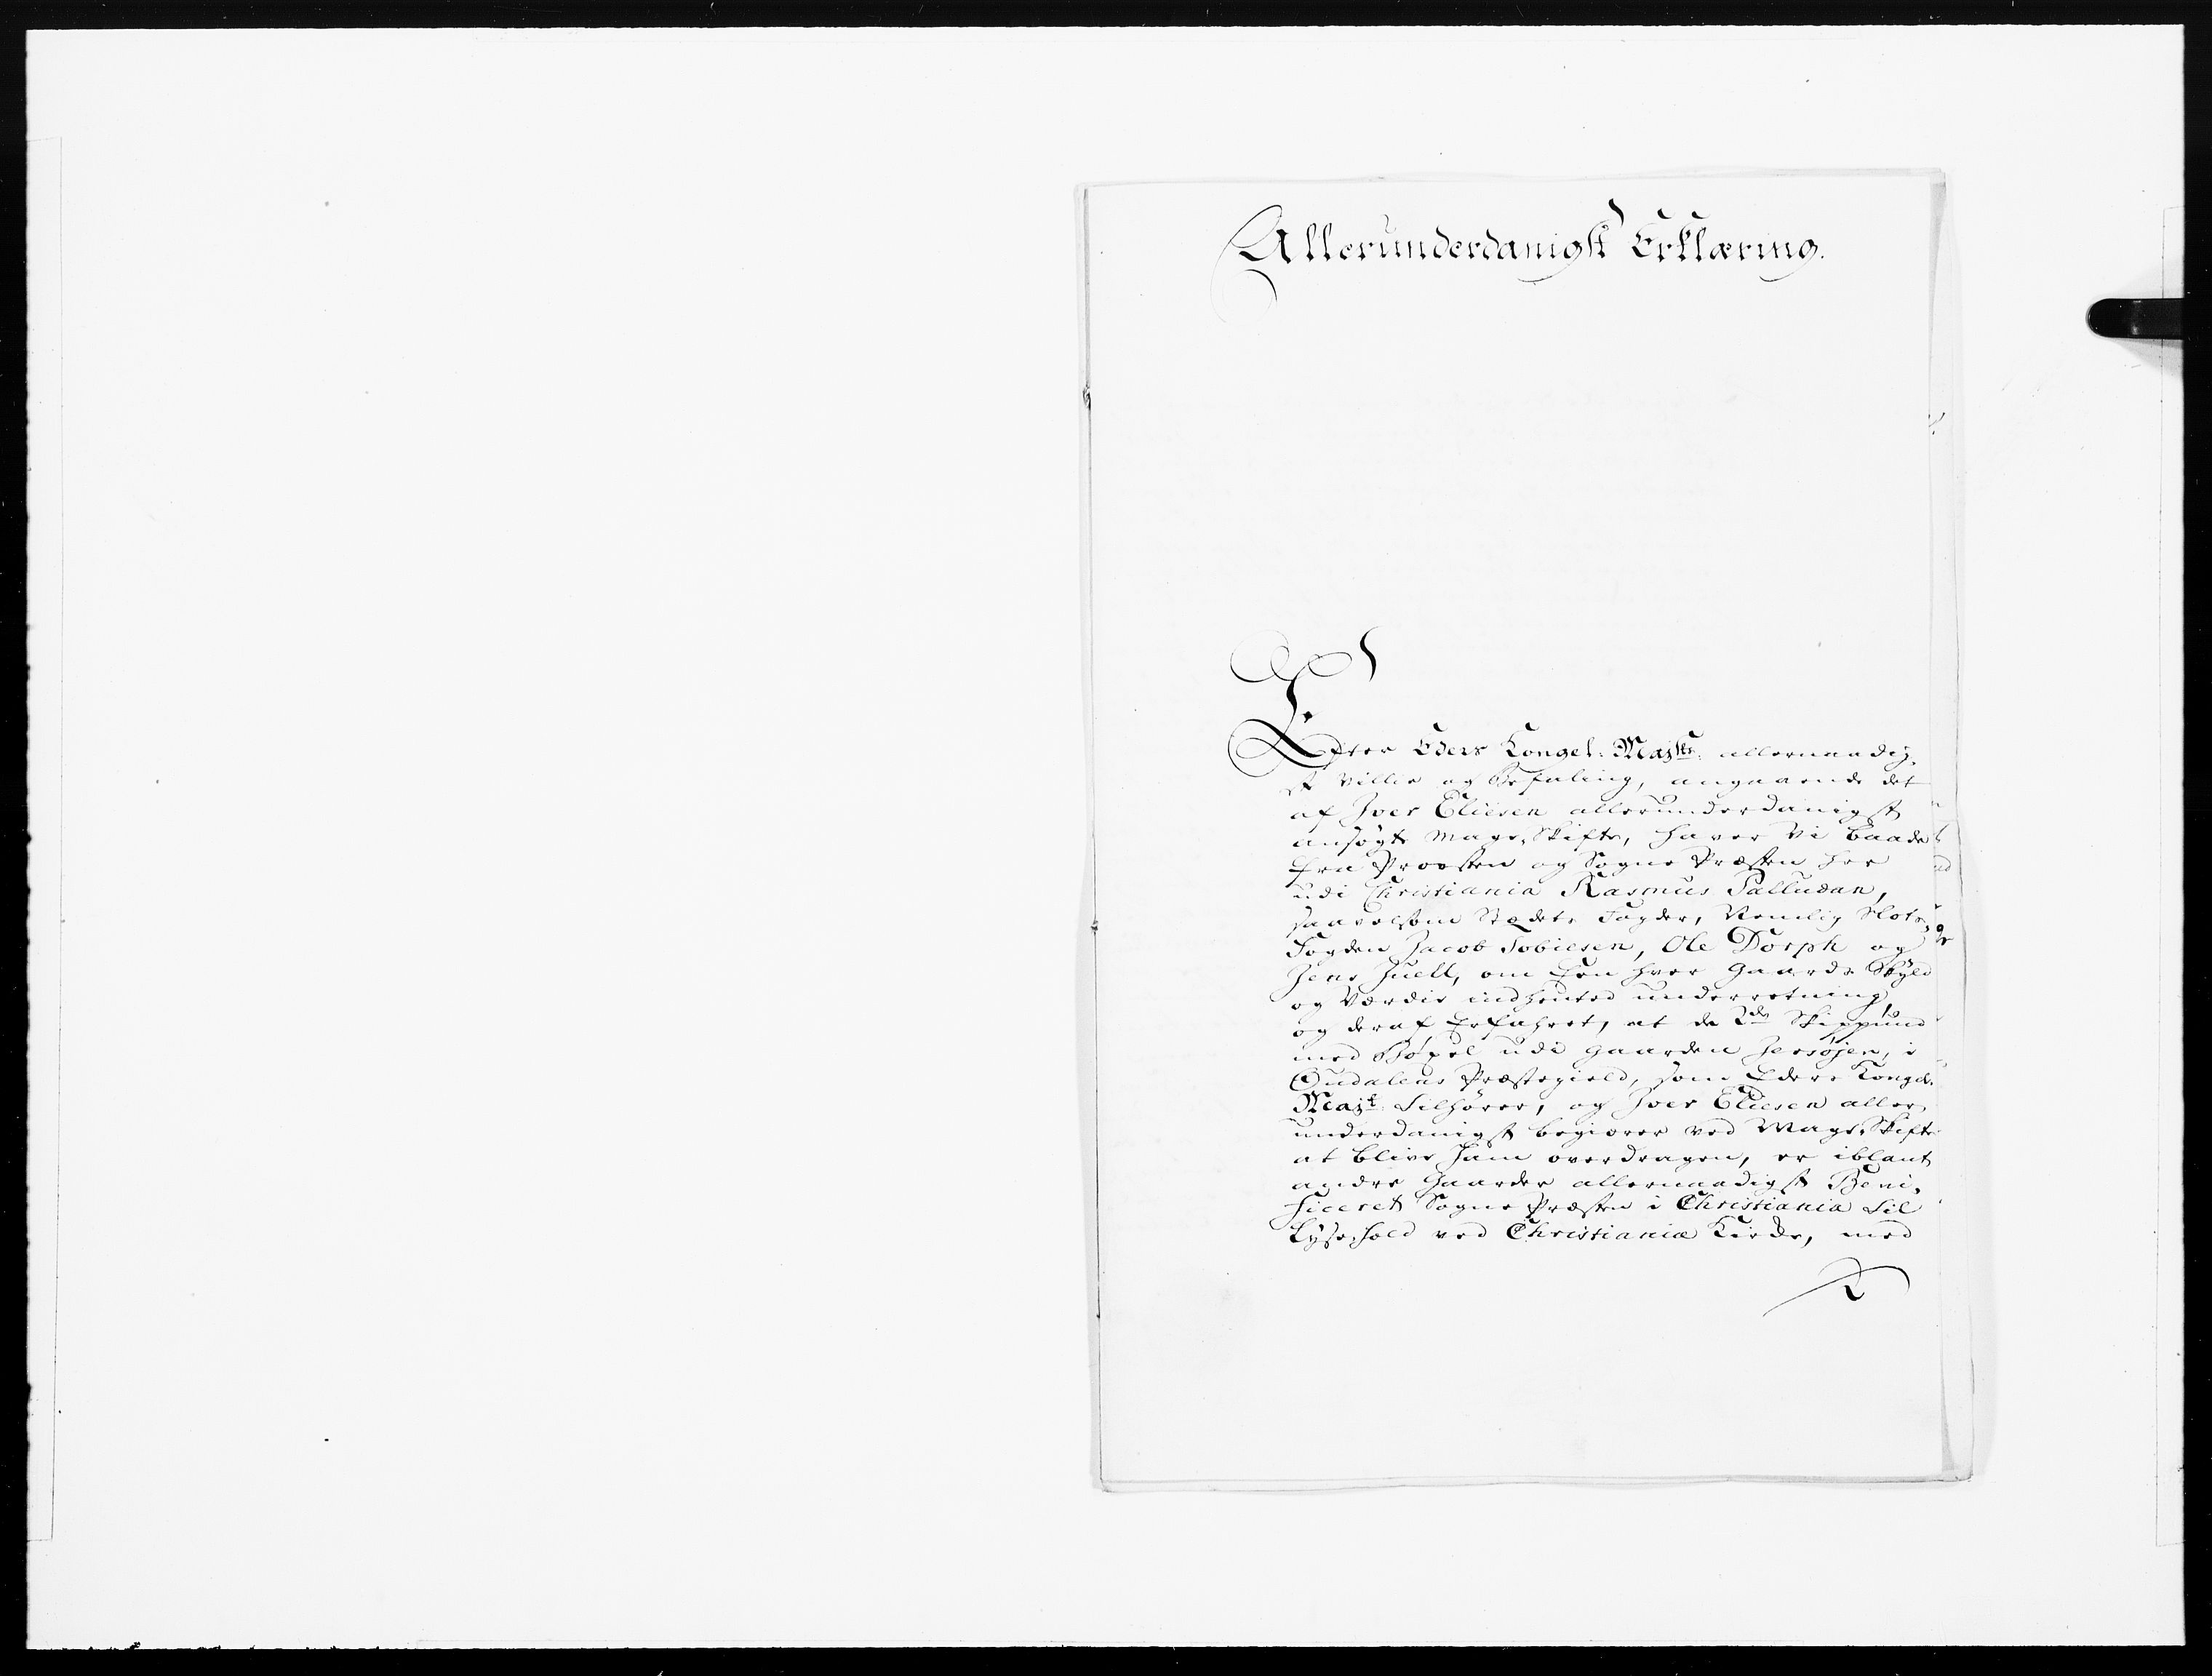 Allerunderdanigst Erklæring.
Efter Eders Kongel: Majts: allernaadig¬
st Villie og Befaling, angaaende det
af Iver Eliesen allerunderdanigst
ansøgte Mage-Skifte, haver Vi baade
fra Provsten og Sogne Præsten her
udi Christiania Rasmus Palludan,
saavelsom Stædets Fogder, Nemlig Slots¬
Fogden Jacob Tobiesen, Ole Dorph og
Jens Juell, om Een hver Gaards Skyld
og Værdie indhented underretning,
og deraf Erfahret, at de 2de Skippund
med Bøxel udi Gaarden Jersøjen, i
Oudalens Præstegield, som Eders Kongel.
Majt: Tilhører, og Iver Eliesen aller
underdanigst begierer ved Mage-Skifte
at blive ham overdragen, er iblant
andre Gaarder allernaadigst Beni¬
ficeret Sogne Præsten i Christiania til
Lyse-hold ved Christianiæ Kirke, med